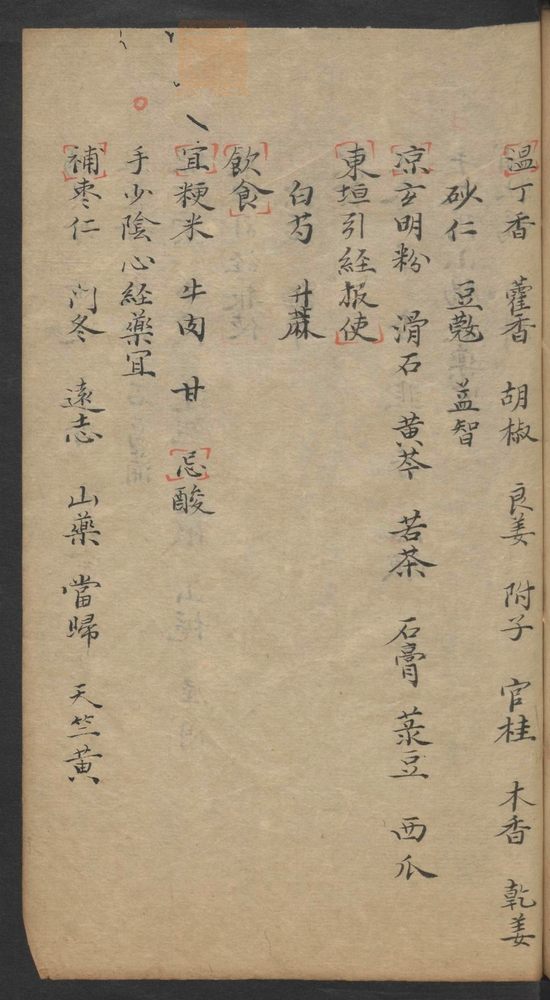 温丁香 藿香 胡椒 良姜 附子 官桂 木香 乾姜
砂仁 豆蔲 益智
凉玄明粉 滑石 黄芩 若茶 石膏 菉豆 西瓜
東垣引経报使
白芍 升蔴
飲食
宜粳米 牛肉 甘 忌酸
手少陰心経藥宜
補枣仁 门冬 遠志 山藥 當歸 天竺黄